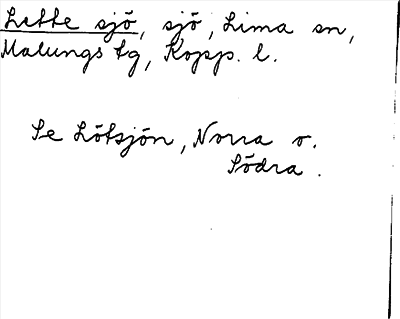 Lette sjö, sjö, Lima sn,
Malungs tg, Kopp. l.
Se Lötsjön, Norra o.
Södra.